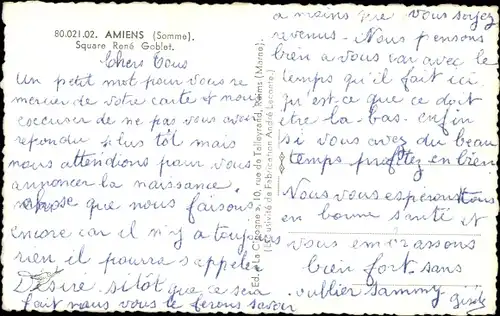 80.021.02. AMIENS (Somme).
Square René Goblet.
Chers Tous
Un petit mot pour vous re
mercier de votre carte et nous
excuser de ne pas vous avoir
répondu plus tôt mais
nous attendions pour vous
annoncer la naissance.
chose que nous faisons
encore car il n'y a toujours
rien il pourra s'appeler
Désiré sitôt que ce sera
fait nous vous le ferons savoir
Ed. « La Cigogne », 10, rue de Talleyrand, Reims (Marne).
(Exclusivité de Fabrication André Leconte.)
a moins que vous soyez
revenus - Nous pensons
bien a vous car avec le
temps qu'il fait ici
qu'est ce que ce doit
etre la-bas. enfin
si vous avez du beau
temps profitez en bien
Nous vous espérons tous
en bonne santé et
vous embrassons
bien fort sans
oublier sammy